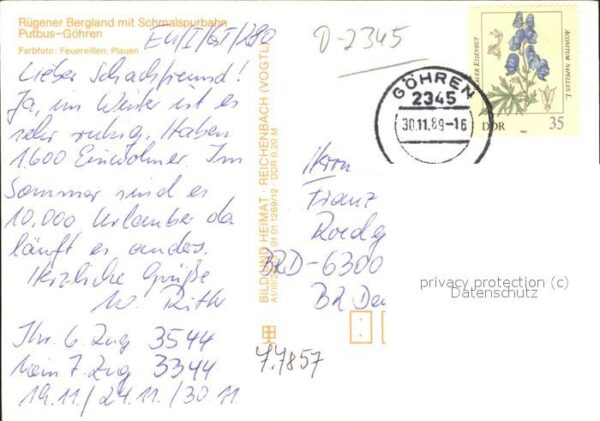 Rügener Bergland mit Schmalspurbahn
Putbus-Göhren
Farbfoto: Feuereißen, Plauen
EU/I/GT/280
Lieber Schachfreund!
Ja, im Winter ist es
sehr ruhig. Haben
1600 Einwohner. Im
Sommer sind es
10.000 Urlauber da
läuft es anders.
Herzliche Grüße
W.
Ihr 6. Zug 3544
Mein 7. Zug 3344
19.11./24.11./30 11
BILD UND HEIMAT · REICHENBACH (VOGTL
01 01 1289/12 · DDR 0,20 M
D-2345
GÖHREN
2345
30.11.89-16
BLAUER EISENHUT
ACONITUM NAPELLUS L.
DDR
35
Herrn
Franz
BRD-6300
privacy protection (c)
Datenschutz
7.7857